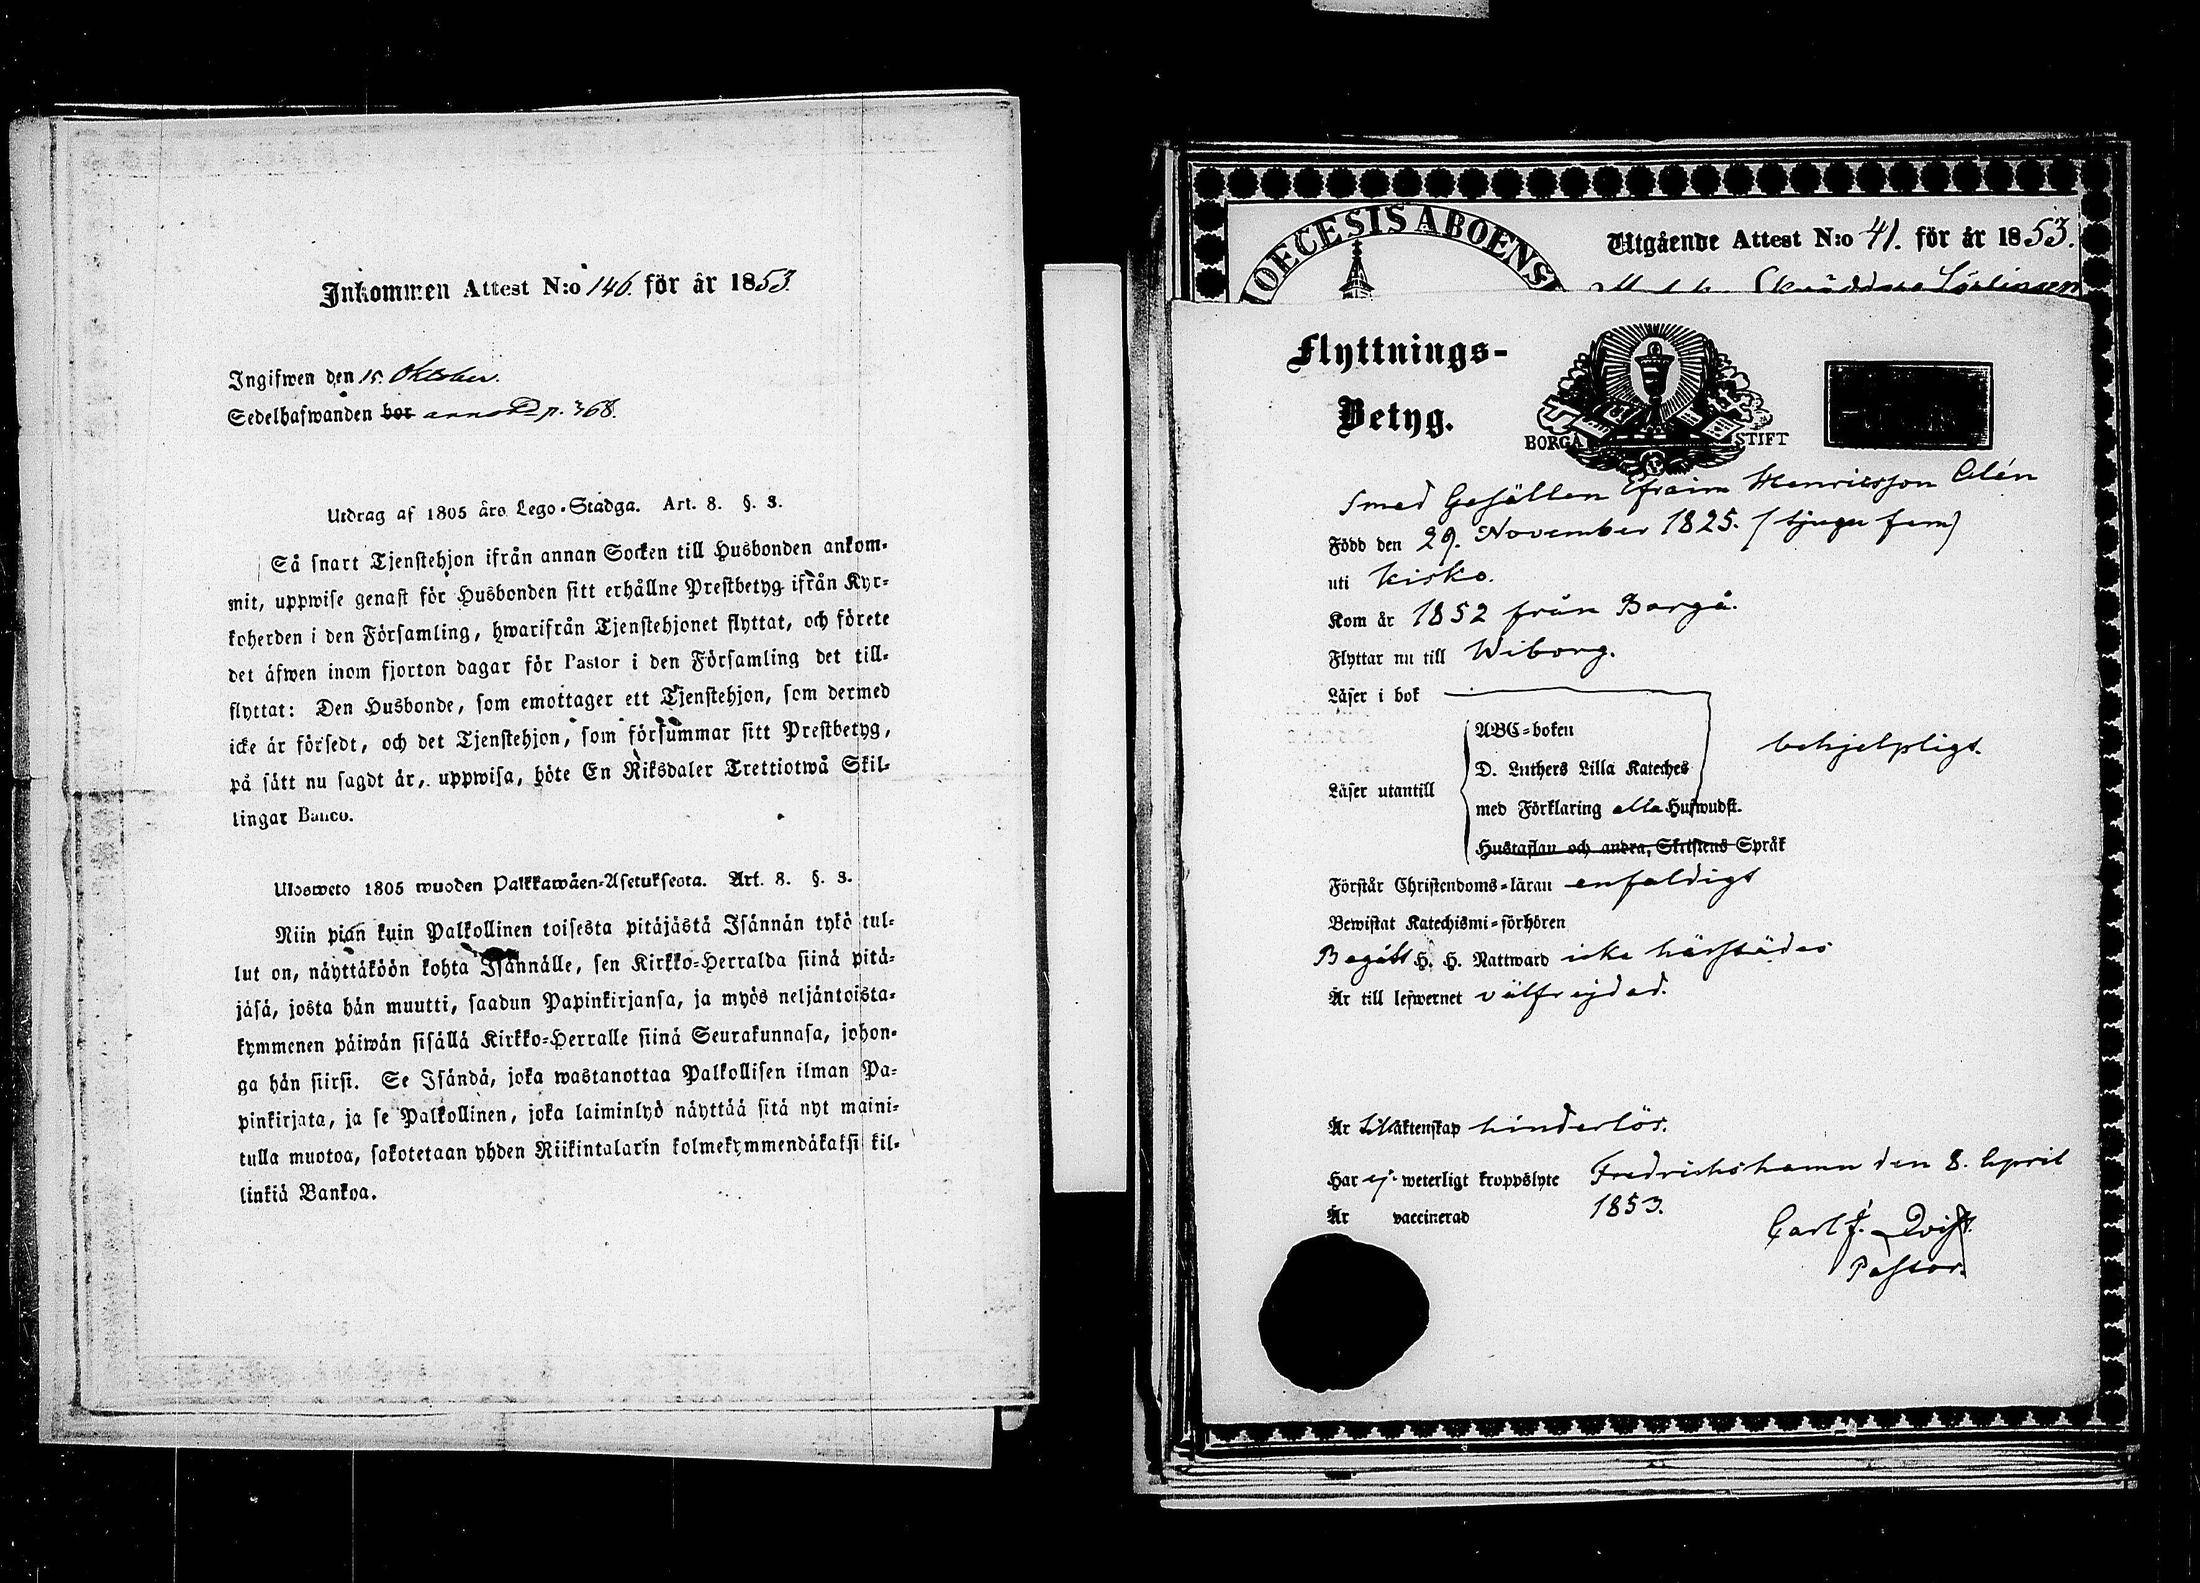 Inkommen Attest N:o 146. för år 1853.
Ingifwen den 15. Oktober.
Sedelhafwanden bor p. 368.
Utdrag af 1805 års Lego-Stadga. Art. 8. §. 3.
Så snart Tjenstehjon ifrån annan Socken till Husbonden ankom-
mit, uppwise genast för Husbonden sitt erhållne Prestbetyg ifrån Kyr-
koherden i den Församling, hwarifrån Tjenstehjonet flyttat, och förete
det äfwen inom fjorton dagar för Pastor i den Församling det till-
flyttat: Den Husbonde, som emottager ett Tjenstehjon, som dermed
icke är försedt, och det Tjenstehjon, som försummar sitt Prestbetyg,
på sätt nu sagdt är, uppwisa, böte En Riksdaler Trettiotwå Skil-
lingar Banco.
Ulosweto 1805 wuoden Palkkawäen-Asetuksesta. Art. 8. §. 3.
Niin pian kuin Palkollinen toisesta pitäjästä Isännän tykö tul-
lut on, näyttäköön kohta Isännälle, sen Kirkko-Herralda siinä pitä-
jäsä, josta hän muutti, saadun Papinkirjansa, ja myös neljäntoista-
kymmenen päiwän sisällä Kirkko-Herralle siinä Seurakunnasa, johon-
ga hän siirsi. Se Isändä, joka wastanottaa Palkollisen ilman Pa-
pinkirjata, ja se Palkollinen, joka laiminlyö näyttää sitä nyt maini-
tulla muotoa, sakotetaan yhden Riikintalarin kolmekymmendäkaksi kil-
linkiä Bankoa.
DIOECESIS ABOENS
Utgående Attest N:o 41. för år 1853.
Flyttnings-
Betyg.
BORGÅ STIFT
Smed Gesällen Efraim Henricsson Alén
Född den 29. November 1825. (tjugu fem)
uti Kisko.
Kom år 1852 från Borgå.
Flyttar nu till Wiborg.
Läser i bok
ABC-boken
behjelpligt.
D. Luthers Lilla Kateches
Läser utantill
med Förklaring alla Hufwudst.
Hustaflan och andra, Skriftens Språk
Förstår Christendoms-läran enfaldigt
Bewistat Katechismi-förhören
Begått H. H. Nattward icke härstädes
Är till lefwernet välfrejdad.
Är till äktenskap hinderlös.
Har ej weterligt kroppslyte Fredrichshamn den 8. April
Är vaccinerad 1853.
Carl F. Qvist.
Pastor.